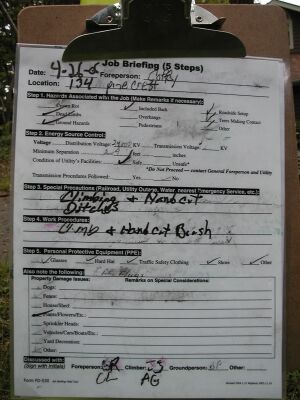 Job Briefing (5 Steps)
Date: 4-26-6 Foreperson:
Location: 134 pine crest
Step 1. Hazards Associated with the Job (Make Remarks if necessary):
Crown Rot Included Bark Roadside Setup
Dead Limbs Overhangs Tree Making Contact
Ground Hazards Pedestrians Other
Step 2. Energy Source Control:
Voltage Distribution Voltage KV Transmission Voltage KV
Minimum Separation feet inches
Condition of Utility's Facilities: Safe Unsafe*
*Do Not Proceed — contact General Foreperson and Utility
Transmission Procedures Followed: Yes No
Step 3. Special Precautions (Railroad, Utility Outage, Water, nearest Emergency Service, etc.):
Climbing & Hand Cut
Ditches
Step 4. Work Procedures:
Climb & Hand Cut Brush
Step 5. Personal Protective Equipment (PPE):
Glasses Hard Hat Traffic Safety Clothing Shoes Other
Also note the following:
Property Damage Issues: Remarks on Special Considerations:
Dogs:
Fence:
House/Shed:
Plants/Flowers/Etc.:
Sprinkler Heads:
Vehicles/Cars/Boats/Etc.:
Yard Decoration:
Other:
Discussed with:
(Sign with Initials) Foreperson: Climber: JS Groundperson: Other:
CL AG